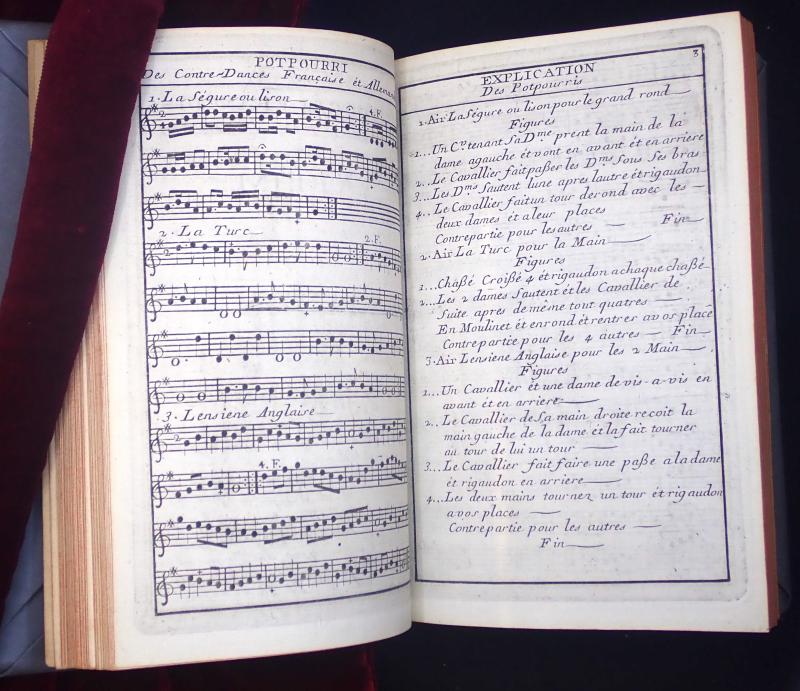 POTPOURRI
Des Contre-Dances Française ét Allemande
1. La Ségure ou lison
4. F.
2. La Turc
2. F.
3. Lensiene Anglaise
4. F.
3
EXPLICATION
Des Potpourris
1. Air La Ségure ou lison pour le grand rond
Figures
1... Un C.er tenant Sa D.me prent la main de la
dame agauche ét vont en avant ét en arriere
2.. Le Cavallier fait paßer les D.ms Sous Ses bras
3... Les D.ms Sautent lune apres lautre ét rigaudon
4.. Le Cavallier fait un tour de rond avec les
deux dames ét a leur places
Contrepartie pour les autres Fin
2. Air La Turc pour la Main
Figures
1... Chaßé Croißé 4 ét rigaudon a chaque chaßé
2... Les 2 dames Sautent ét les Cavallier de
Suite apres de même tout quatres
En Moulinet ét en rond ét rentrer a vos place
Contrepartie pour les 4 autres Fin
3. Air Lensiene Anglaise pour les 2 Main
Figures
1... Un Cavallier ét une dame de vis-a-vis en
avant ét en arriere
2.. Le Cavallier de Sa main droite recoit la
main gauche de la dame ét la fait tourner
au tour de lui un tour
3... Le Cavallier fait faire une paße a la dame
ét rigaudon en arriere
4... Les deux mains tournez un tour ét rigaudon
a vos places
Contrepartie pour les autres
Fin